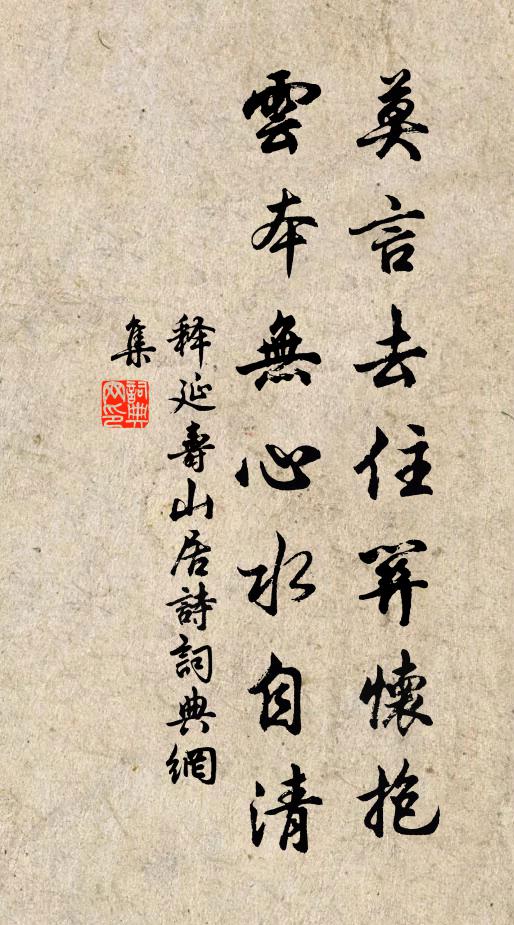 莫言去住關懷抱
雲本無心水自清
释延壽山居詩詞典網
集
詞典網印